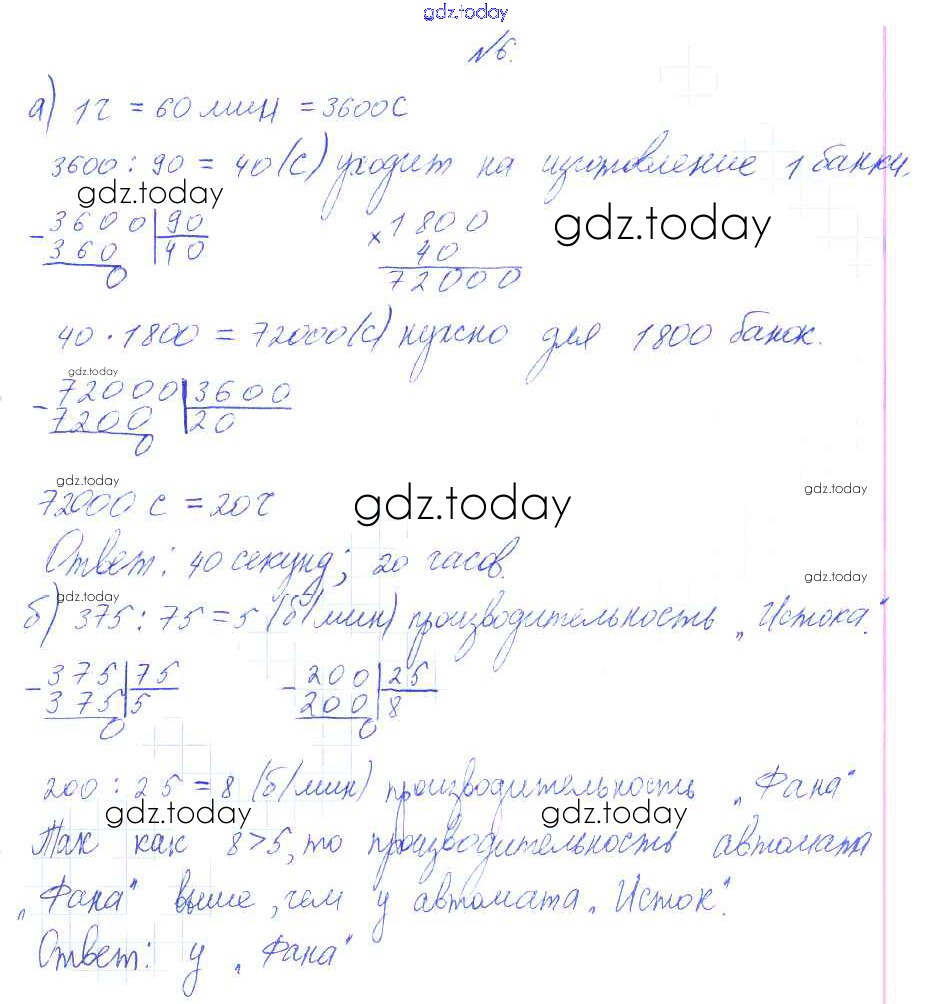 gdz.today
№6.
а) 1ч = 60 мин = 3600с
3600 : 90 = 40 (с) уходит на изготовление 1 банки.
gdz.today
gdz.today
- 3600 | 90
360 | 40
0
× 1800
40
72000
40 · 1800 = 72000 (с) нужно для 1800 банок.
gdz.today
- 72000 | 3600
7200 | 20
0
gdz.today
gdz.today
gdz.today
72000 с = 20ч
Ответ: 40 секунд; 20 часов.
gdz.today
gdz.today
б) 375 : 75 = 5 (б/мин) производительность „Истока".
- 375 | 75
375 | 5
0
- 200 | 25
200 | 8
0
200 : 25 = 8 (б/мин) производительность „Фана"
gdz.today
gdz.today
Так как 8 > 5, то производительность автомата
„Фана" выше, чем у автомата „Исток".
Ответ: у „Фана"